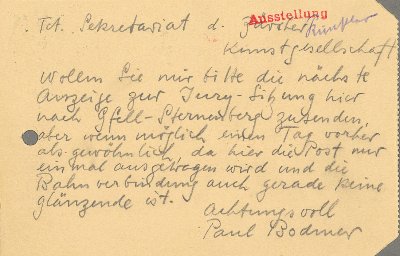 Ausstellung
Tit. Sekretariat d. Zürcher
Künstler
Kunstgesellschaft
Wollen Sie mir bitte die nächste
Anzeige zur Jury-Sitzung hier
nach Gfell-Sternenberg zusenden,
aber wenn möglich einen Tag vorher
als gewöhnlich, da hier die Post nur
einmal ausgetragen wird und die
Bahnverbindung auch gerade keine
glänzende ist.
Achtungsvoll
Paul Bodmer